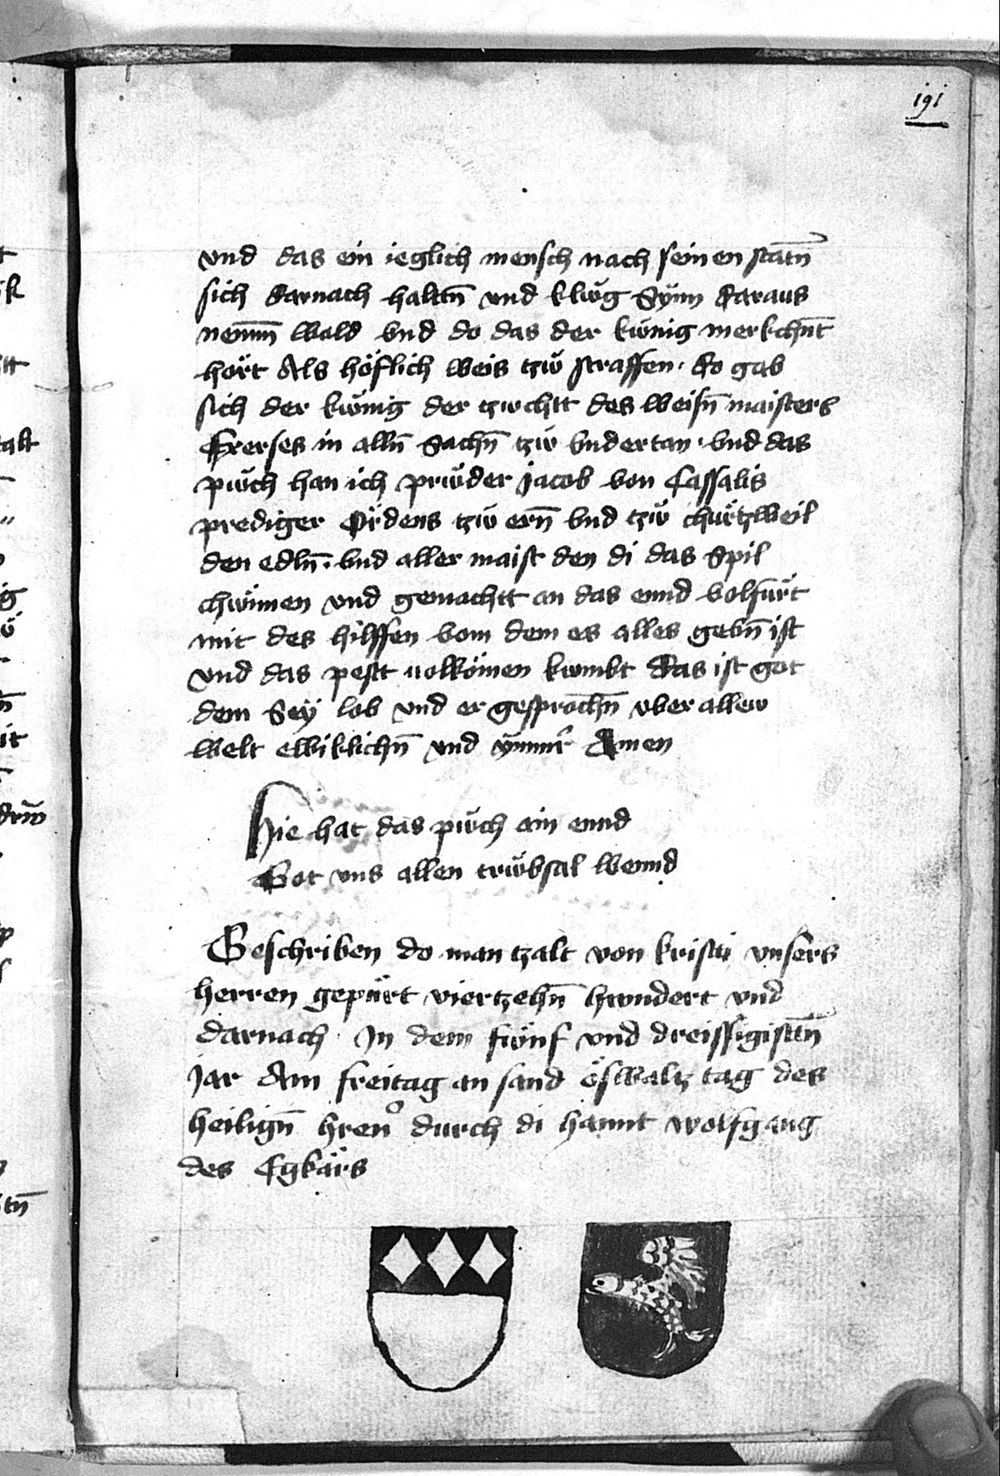 191
vnd das ein ieglich mensch nach seinen statn̄
sich darnach haltn̄ vnd klůg Sÿnn daraus
nemm̄ wold vnd do das der kůnig merkchn̄t
hört Als höflich weis tzů straffen · do gab
sich der kůnig der tzuchtt des weisn̄ maisters
Exerses in alln̄ Sachn̄ tzů vndertan · vnd das
půch han ich průder Jacob von Cassalis
prediger Ordens tzů ern̄ vnd tzů chürtzweil
den edln̄ · vnd aller maist den di das Spil
chünnen vnd gemachtt an das ennd volfürt
mit des hilffen vom dem es alles gebn̄ ist
vnd das pestt uolkömen kumbt das ist got
dem Seÿ lob vnd er gesprochn̄ vber allew
welt ewiklichn̄ vnd ÿmmr̄ Amen
Hie hat das půch ain ennd
Got vns allen trůbsal wennd
Geschriben do man tzalt von kristi vnsers
herren gepürt viertzehn̄ hundert vnd
darnach · In dem fünf vnd dreissigistn̄
Jar Am freitag an sand öswaltz tag des
heilign̄ hren̊ durch di hannt wolfgang
des